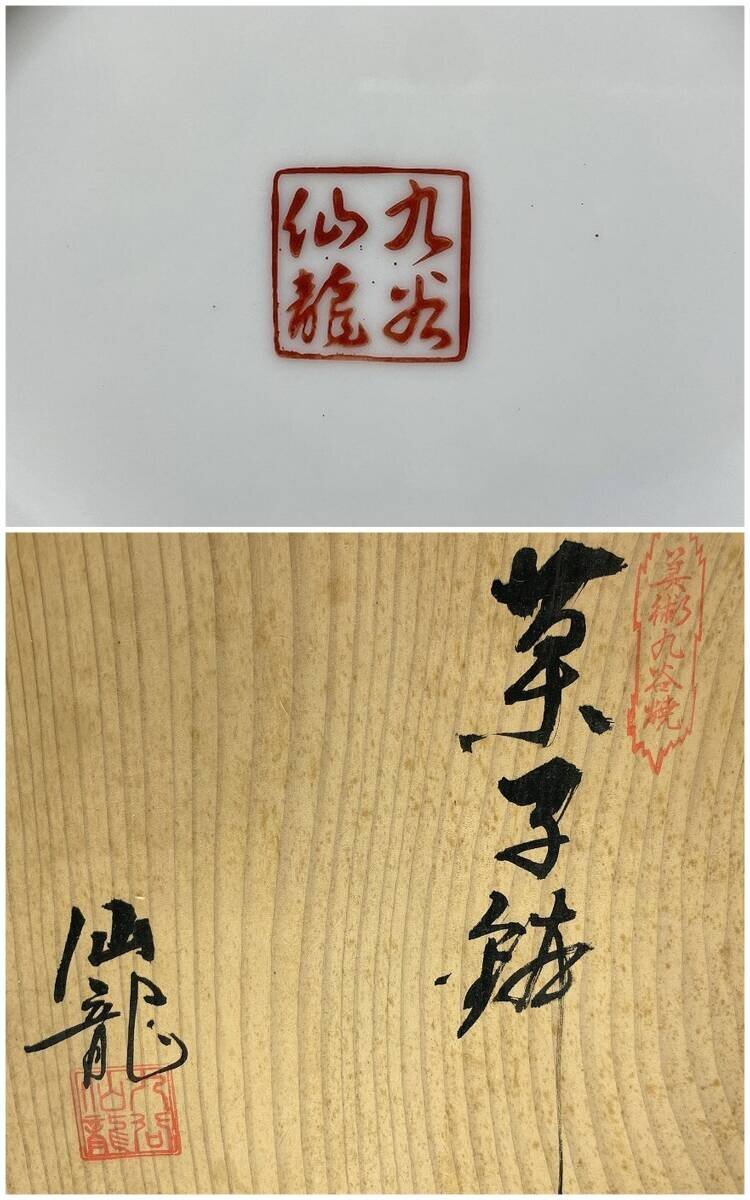 九谷
仙龍
美術九谷焼
菓子鉢
仙龍
九谷
仙龍